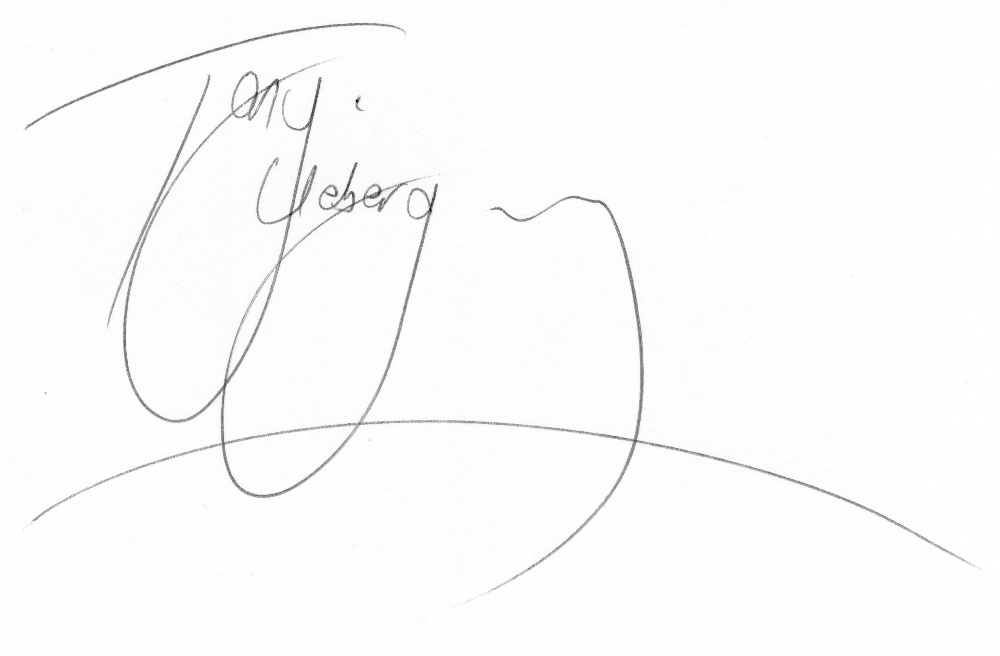 Tony
Cleberg